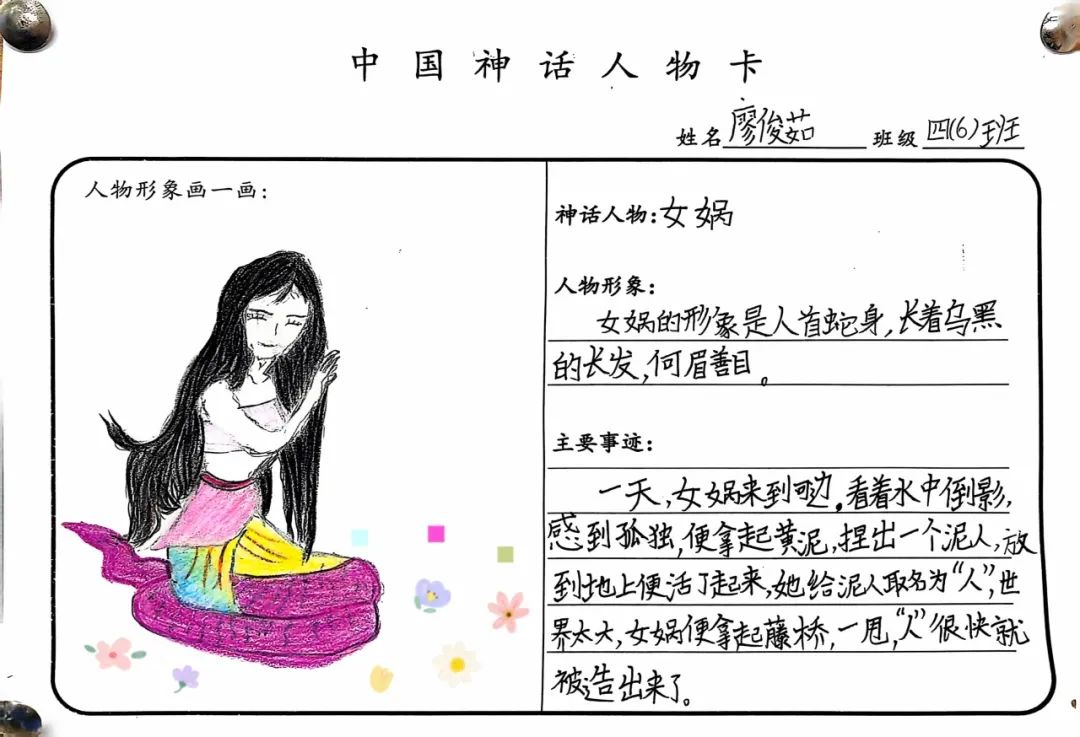 中国神话人物卡
姓名廖俊茹 班级四(6)班
人物形象画一画:
神话人物:女娲
人物形象:
女娲的形象是人首蛇身,长着乌黑
的长发,何眉善目。
主要事迹:
一天,女娲来到 看着水中倒影,
感到孤独,便拿起黄泥,捏出一个泥人,放
到地上便活了起来,她给泥人取名为“人”,世
界太大,女娲便拿起藤桥,一甩,“人”很快就
被造出来了。